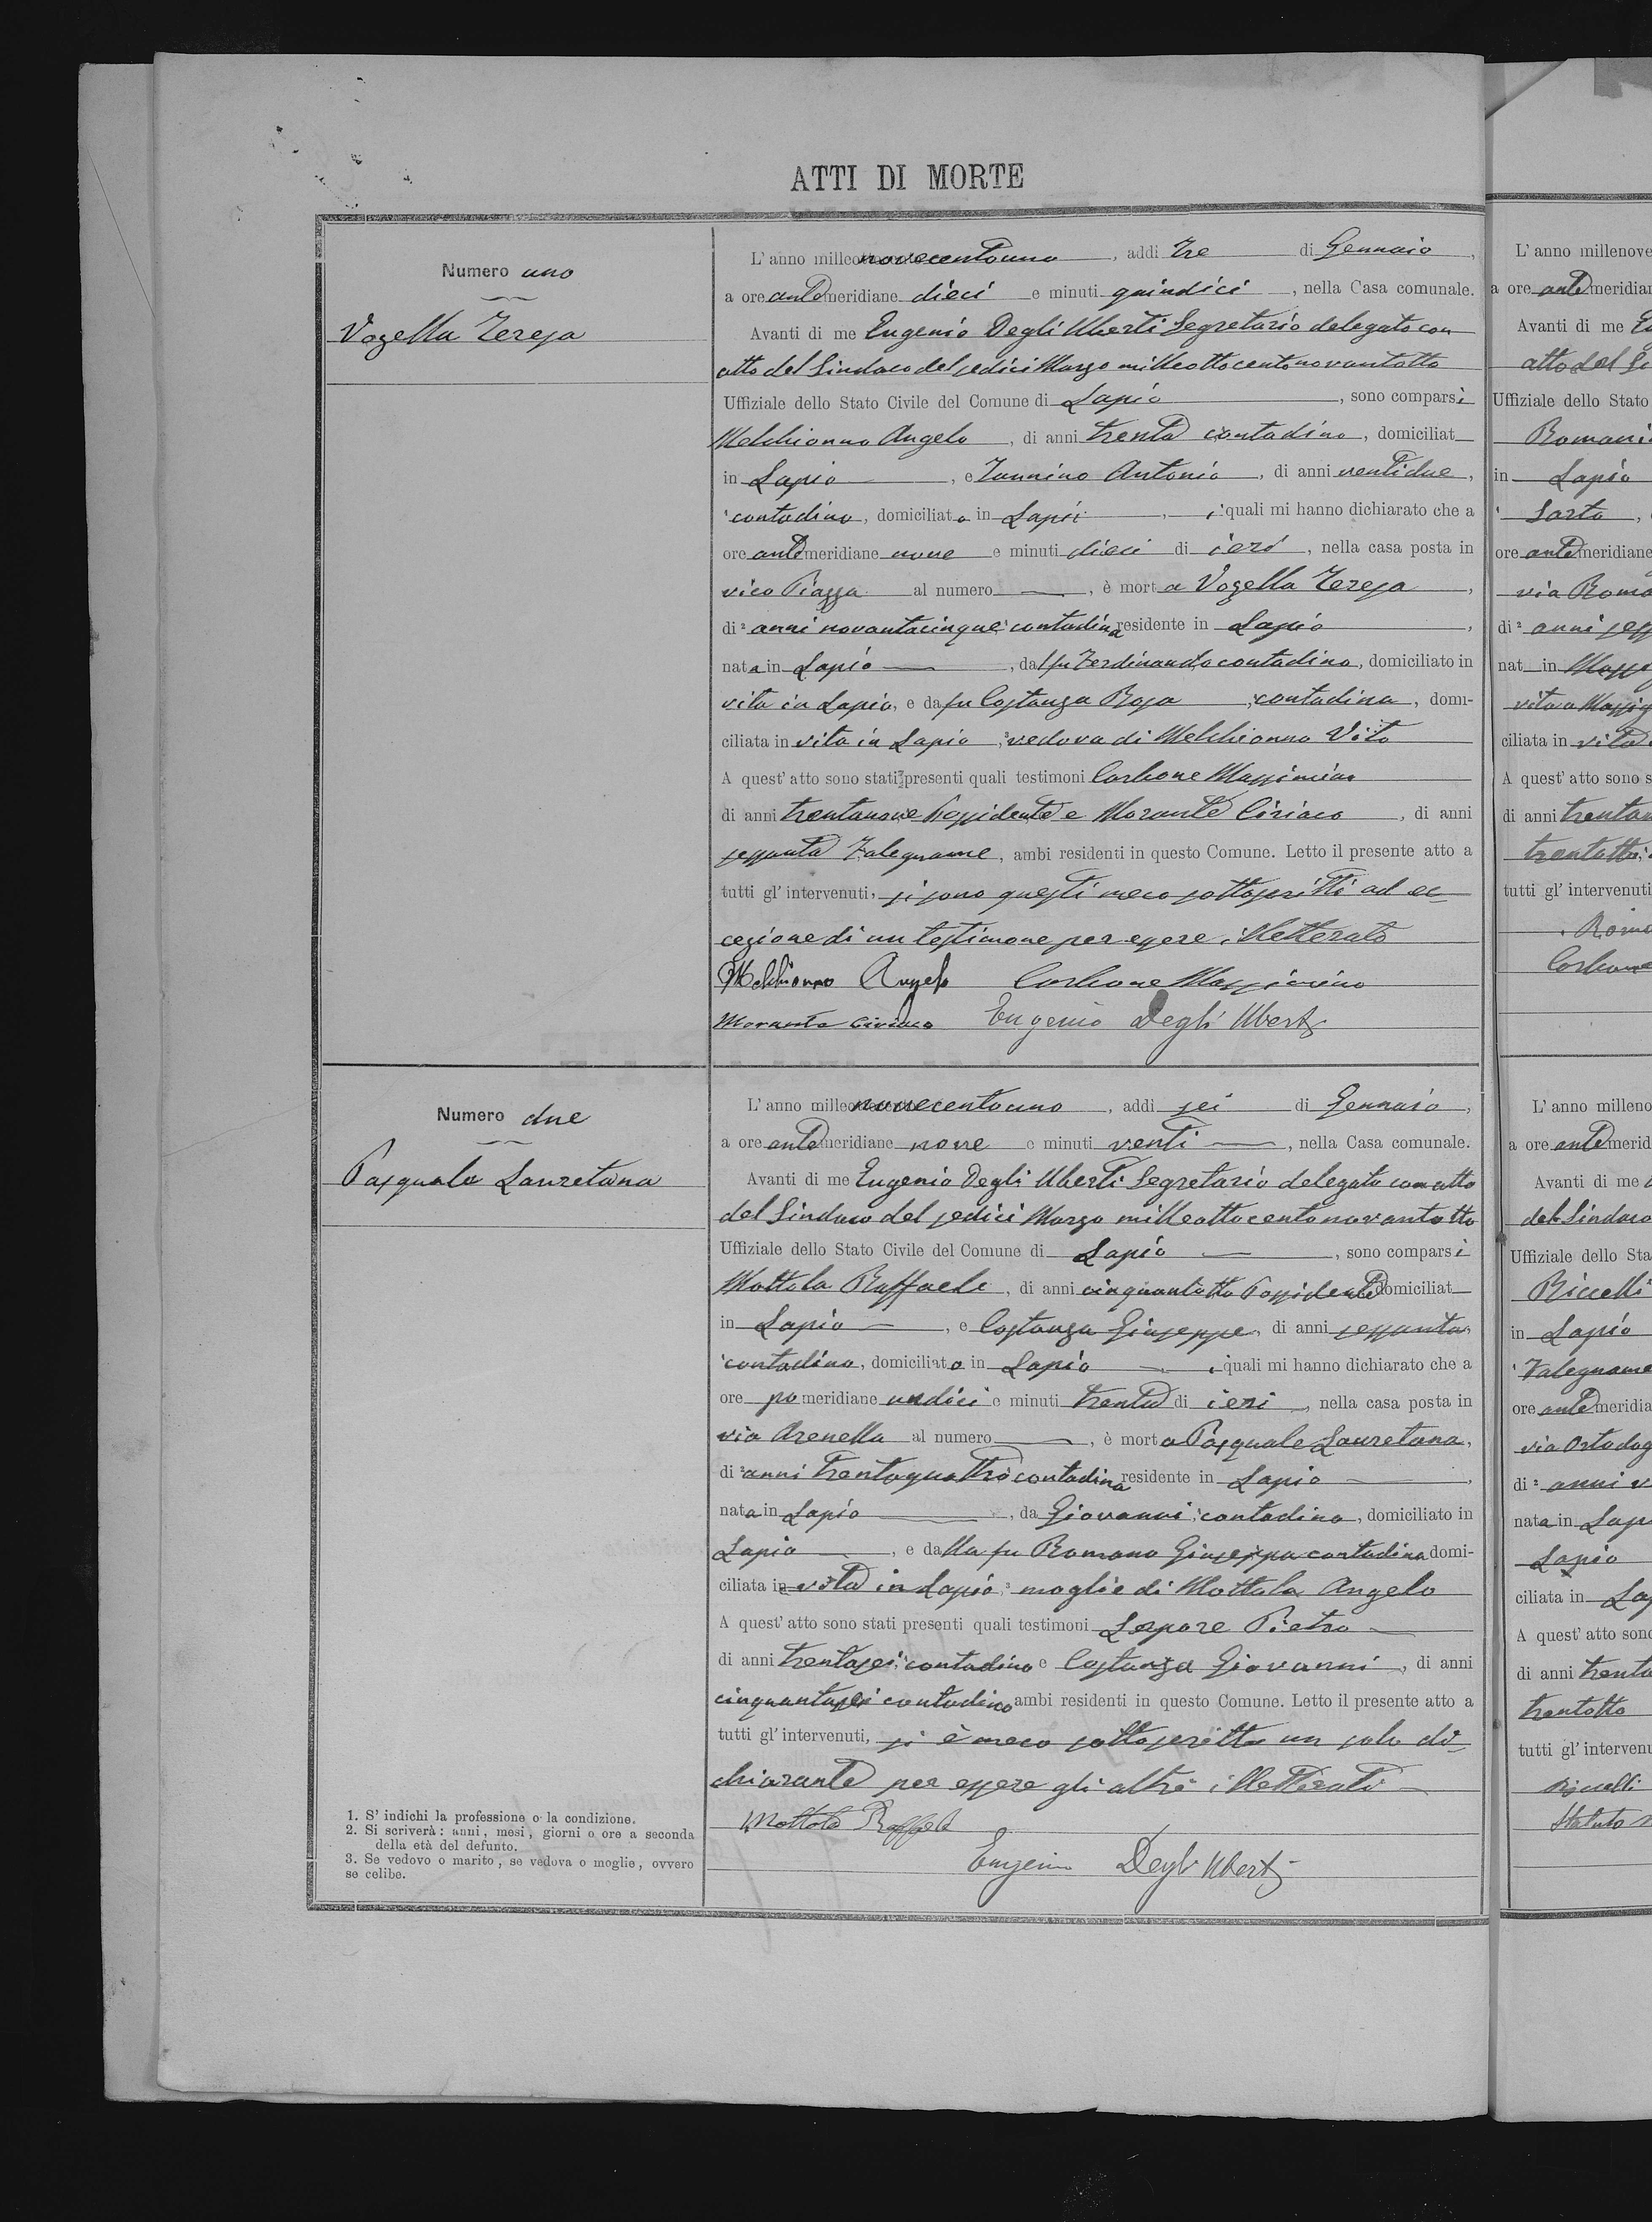 ATTI DI MORTE
Numero uno
Vozella Teresa
L'anno millenovecentouno, addì Tre di Gennaio,
a ore antemeridiane dieci e minuti quindici, nella Casa comunale.
Avanti di me Eugenio Degli Uberti Segretario delegato con
atto del Sindaco del sedici Marzo milleottocentonovantotto
Uffiziale dello Stato Civile del Comune di Lapio, sono comparsi
Melchionno Angelo, di anni trenta contadino, domiciliat
in Lapio, e Iannino Antonio, di anni ventidue,
contadino, domiciliato in Lapio, i quali mi hanno dichiarato che a
ore antemeridiane nove e minuti dieci di ieri, nella casa posta in
vico Piazza al numero, è morta Vozella Teresa,
di anni novantacinque contadina residente in Lapio,
nata in Lapio, dal fu Ferdinando contadino, domiciliato in
vita in Lapio, e da fu Costanza Rosa, contadina, domi-
ciliata in vita in Lapio, vedova di Melchionno Vito
A quest'atto sono stati presenti quali testimoni Carbone Massimino
di anni trentanove Possidente e Morante Ciriaco, di anni
sessanta Falegname, ambi residenti in questo Comune. Letto il presente atto a
tutti gl'intervenuti, si sono questi meco sottoscritti ad ec-
cezione di un testimone per essere illetterato
Melchionno Angelo Carbone Massimino
Morante Ciriaco Eugenio Degli Uberti
Numero due
Pasquale Lauretana
L'anno millenovecentouno, addì sei di Gennaio,
a ore antemeridiane nove e minuti venti, nella Casa comunale.
Avanti di me Eugenio Degli Uberti Segretario delegato con atto
del Sindaco del sedici Marzo milleottocentonovantotto
Uffiziale dello Stato Civile del Comune di Lapio, sono comparsi
Mottola Raffaele, di anni cinquantotto Possidente domiciliat
in Lapio, e Costanza Giuseppe, di anni sessanta,
contadino, domiciliato in Lapio, i quali mi hanno dichiarato che a
ore pomeridiane undici e minuti trenta di ieri, nella casa posta in
via Arenella al numero, è morta Pasquale Lauretana,
di anni trentaquattro contadina residente in Lapio,
nata in Lapio, da Giovanni, contadino, domiciliato in
Lapio, e dalla fu Romano Giuseppa contadina domi-
ciliata in vita in Lapio, moglie di Mottola Angelo
A quest'atto sono stati presenti quali testimoni Lepore Pietro
di anni trentasei, contadino e Costanza Giovanni, di anni
cinquantasei contadino ambi residenti in questo Comune. Letto il presente atto a
tutti gl'intervenuti, si è meco sottoscritto un solo di-
chiarante per essere gli altri illetterati
Mottola Raffaele
Eugenio Degli Uberti
1. S'indichi la professione o la condizione.
2. Si scriverà: anni, mesi, giorni o ore a seconda
della età del defunto.
3. Se vedovo o marito, se vedova o moglie, ovvero
se celibe.
L'anno millenove
a ore antemeridian
Avanti di me
atto del
Uffiziale dello Stato
in Lapio
Sarto
ore antemeridiane
via Roma
di anni
nat in
vita a
ciliata in vita
A quest'atto sono s
di anni
trentotto
tutti gl'intervenuti
Carbone
L'anno milleno
a ore antemerid
Avanti di me
del Sindaco
Uffiziale dello Sta
Riccelli
in Lapio
Falegname
ore antemeridia
via
di anni
nata in Lap
Lapio
ciliata in La
A quest'atto sono
di anni
trentotto
tutti gl'interven